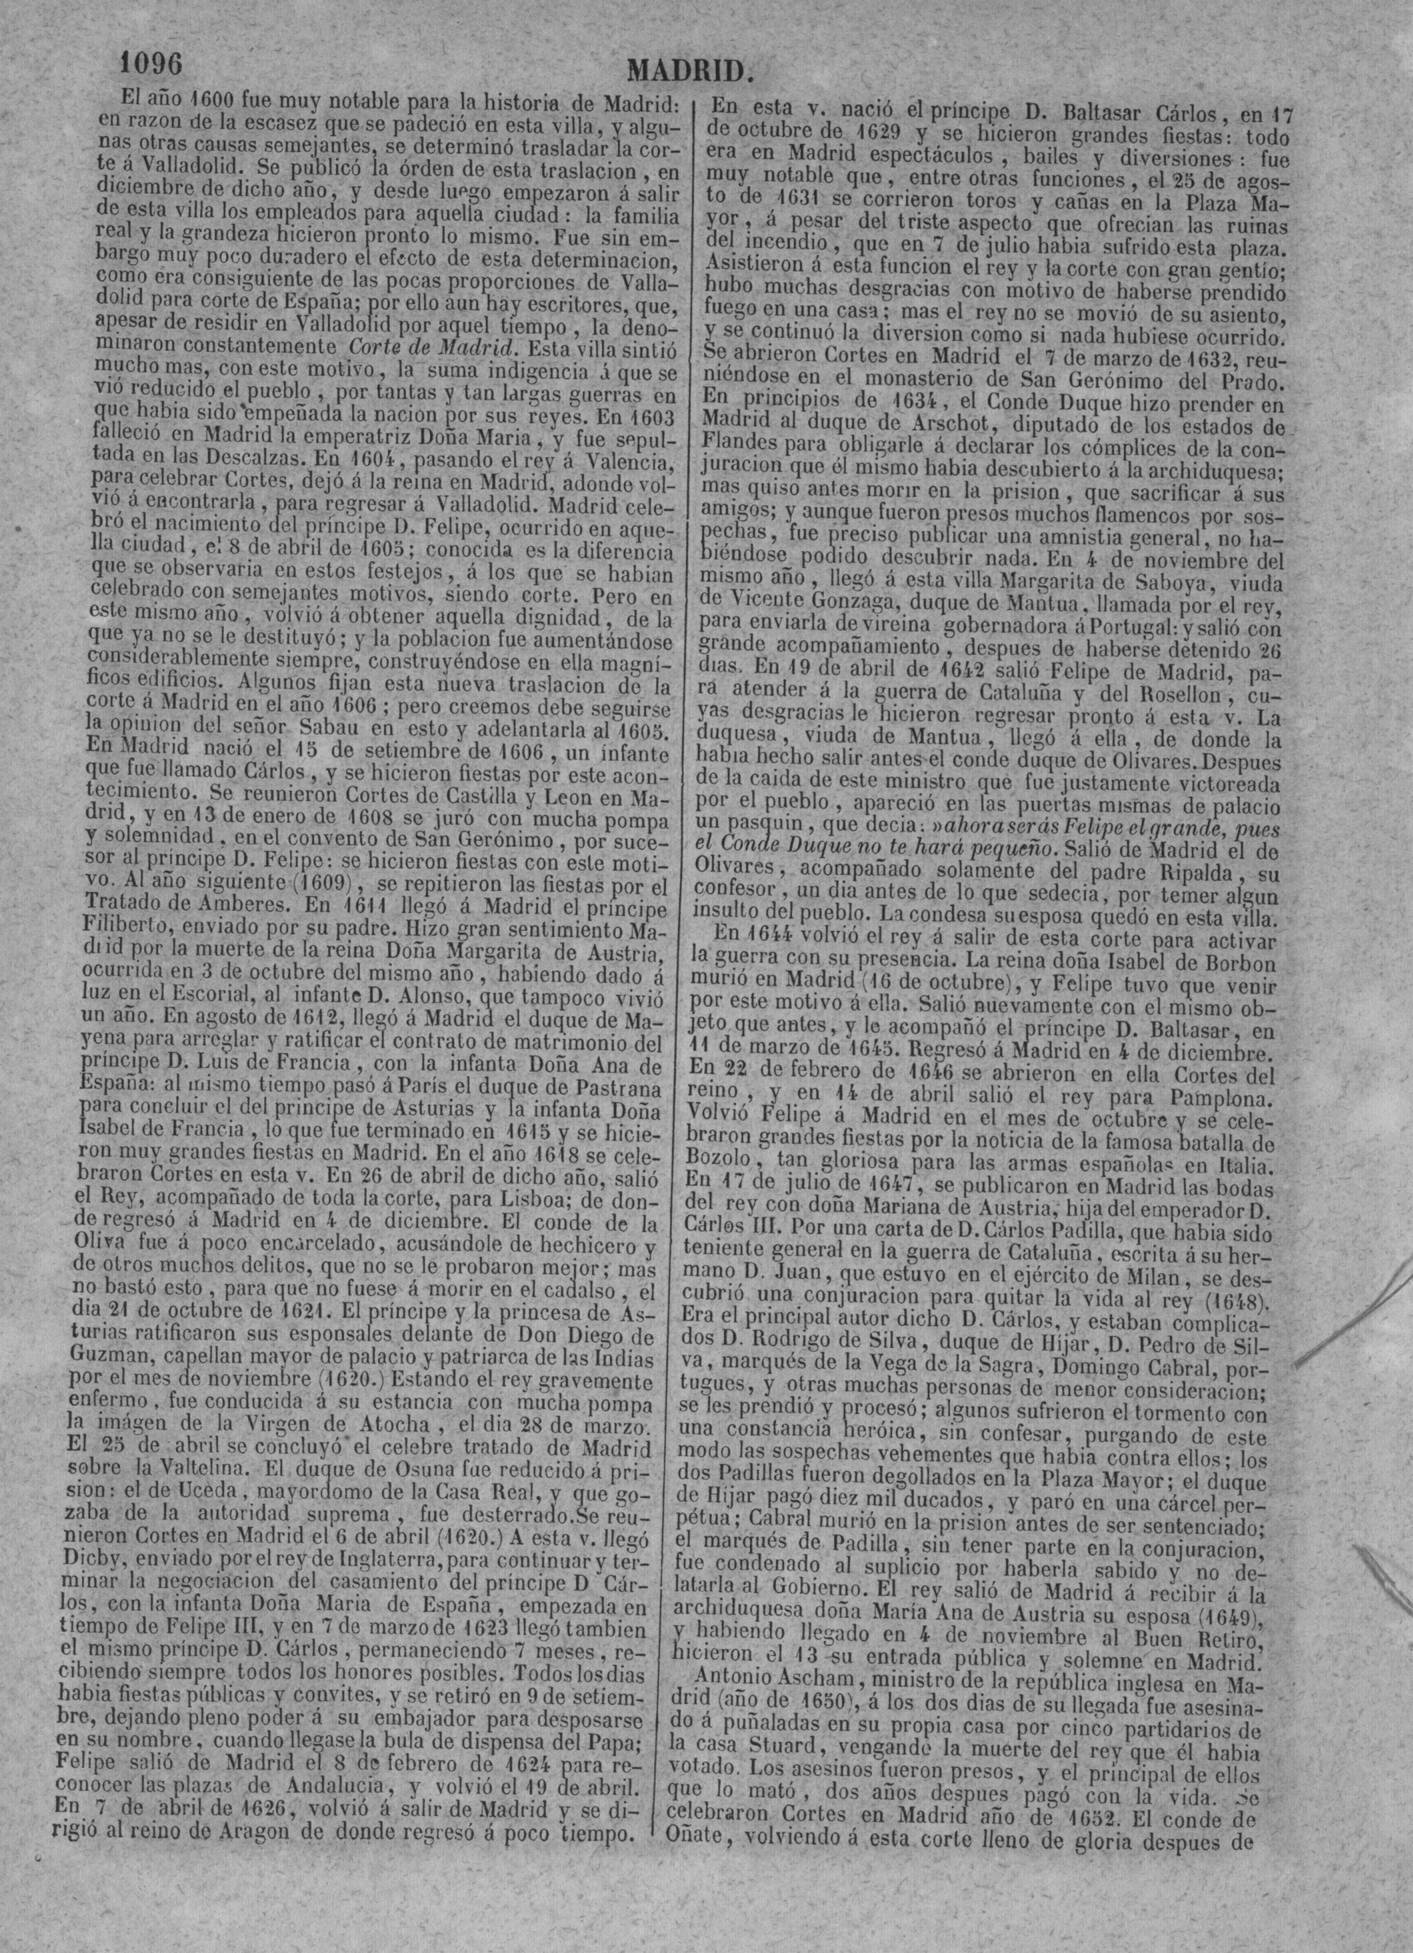 1096
MADRID.
El año 1600 fue muy notable para la historia de Madrid:
en razon de la escasez que se padeció en esta villa, y algu-
nas otras causas semejantes, se determinó trasladar la cor-
te á Valladolid. Se publicó la órden de esta traslacion, en
diciembre de dicho año, y desde luego empezaron á salir
de esta villa los empleados para aquella ciudad: la familia
real y la grandeza hicieron pronto lo mismo. Fue sin em-
bargo muy poco duradero el efecto de esta determinacion,
como era consiguiente de las pocas proporciones de Valla-
dolid para corte de España; por ello aun hay escritores, que,
apesar de residir en Valladolid por aquel tiempo, la deno-
minaron constantemente Corte de Madrid. Esta villa sintió
mucho mas, con este motivo, la suma indigencia á que se
vió reducido el pueblo, por tantas y tan largas guerras en
que habia sido empeñada la nacion por sus reyes. En 1603
falleció en Madrid la emperatriz Doña Maria, y fue sepul-
tada en las Descalzas. En 1604, pasando el rey á Valencia,
para celebrar Cortes, dejó á la reina en Madrid, adonde vol-
vió á encontrarla, para regresar á Valladolid. Madrid cele-
bró el nacimiento del príncipe D. Felipe, ocurrido en aque-
lla ciudad, el 8 de abril de 1605; conocida es la diferencia
que se observaria en estos festejos, á los que se habian
celebrado con semejantes motivos, siendo corte. Pero en
este mismo año, volvió á obtener aquella dignidad, de la
que ya no se le destituyó; y la poblacion fue aumentándose
considerablemente siempre, construyéndose en ella magní-
ficos edificios. Algunos fijan esta nueva traslacion de la
corte á Madrid en el año 1606; pero creemos debe seguirse
la opinion del señor Sabau en esto y adelantarla al 1605.
En Madrid nació el 15 de setiembre de 1606, un infante
que fue llamado Cárlos, y se hicieron fiestas por este acon-
tecimiento. Se reunieron Cortes de Castilla y Leon en Ma-
drid, y en 13 de enero de 1608 se juró con mucha pompa
y solemnidad, en el convento de San Gerónimo, por suce-
sor al príncipe D. Felipe: se hicieron fiestas con este moti-
vo. Al año siguiente (1609), se repitieron las fiestas por el
Tratado de Amberes. En 1611 llegó á Madrid el príncipe
Filiberto, enviado por su padre. Hizo gran sentimiento Ma-
drid por la muerte de la reina Doña Margarita de Austria,
ocurrida en 3 de octubre del mismo año, habiendo dado á
luz en el Escorial, al infante D. Alonso, que tampoco vivió
un año. En agosto de 1612, llegó á Madrid el duque de Ma-
yena para arreglar y ratificar el contrato de matrimonio del
príncipe D. Luis de Francia, con la infanta Doña Ana de
España: al mismo tiempo pasó á París el duque de Pastrana
para concluir el del príncipe de Asturias y la infanta Doña
Isabel de Francia, lo que fue terminado en 1615 y se hicie-
ron muy grandes fiestas en Madrid. En el año 1618 se cele-
braron Cortes en esta v. En 26 de abril de dicho año, salió
el Rey, acompañado de toda la corte, para Lisboa; de don-
de regresó á Madrid en 4 de diciembre. El conde de la
Oliva fue á poco encarcelado, acusándole de hechicero y
de otros muchos delitos, que no se le probaron mejor; mas
no bastó esto, para que no fuese á morir en el cadalso, el
dia 21 de octubre de 1621. El príncipe y la princesa de As-
turias ratificaron sus esponsales delante de Don Diego de
Guzman, capellan mayor de palacio y patriarca de las Indias
por el mes de noviembre (1620.) Estando el rey gravemente
enfermo, fue conducida á su estancia con mucha pompa
la imágen de la Virgen de Atocha, el dia 28 de marzo.
El 25 de abril se concluyó el celebre tratado de Madrid
sobre la Valtelina. El duque de Osuna fue reducido á pri-
sion: el de Uceda, mayordomo de la Casa Real, y que go-
zaba de la autoridad suprema, fue desterrado. Se reu-
nieron Cortes en Madrid el 6 de abril (1620.) A esta v. llegó
Dicby, enviado por el rey de Inglaterra, para continuar y ter-
minar la negociacion del casamiento del príncipe D Cár-
los, con la infanta Doña Maria de España, empezada en
tiempo de Felipe III, y en 7 de marzo de 1623 llegó tambien
el mismo príncipe D. Cárlos, permaneciendo 7 meses, re-
cibiendo siempre todos los honores posibles. Todos los dias
habia fiestas públicas y convites, y se retiró en 9 de setiem-
bre, dejando pleno poder á su embajador para desposarse
en su nombre, cuando llegase la bula de dispensa del Papa;
Felipe salió de Madrid el 8 de febrero de 1624 para re-
conocer las plazas de Andalucia, y volvió el 19 de abril.
En 7 de abril de 1626, volvió á salir de Madrid y se di-
rigió al reino de Aragon de donde regresó á poco tiempo.
En esta v. nació el príncipe D. Baltasar Cárlos, en 17
de octubre de 1629 y se hicieron grandes fiestas: todo
era en Madrid espectáculos, bailes y diversiones: fue
muy notable que, entre otras funciones, el 25 de agos-
to de 1631 se corrieron toros y cañas en la Plaza Ma-
yor, á pesar del triste aspecto que ofrecian las ruinas
del incendio, que en 7 de julio habia sufrido esta plaza.
Asistieron á esta funcion el rey y la corte con gran gentio;
hubo muchas desgracias con motivo de haberse prendido
fuego en una casa; mas el rey no se movió de su asiento,
y se continuó la diversion como si nada hubiese ocurrido.
Se abrieron Cortes en Madrid el 7 de marzo de 1632, reu-
niéndose en el monasterio de San Gerónimo del Prado.
En principios de 1634, el Conde Duque hizo prender en
Madrid al duque de Arschot, diputado de los estados de
Flandes para obligarle á declarar los cómplices de la con-
juracion que él mismo habia descubierto á la archiduquesa;
mas quiso antes morir en la prision, que sacrificar á sus
amigos; y aunque fueron presos muchos flamencos por sos-
pechas, fue preciso publicar una amnistia general, no ha-
biéndose podido descubrir nada. En 4 de noviembre del
mismo año, llegó á esta villa Margarita de Saboya, viuda
de Vicente Gonzaga, duque de Mantua, llamada por el rey,
para enviarla de vireina gobernadora á Portugal: y salió con
grande acompañamiento, despues de haberse detenido 26
dias. En 19 de abril de 1642 salió Felipe de Madrid, pa-
ra atender á la guerra de Cataluña y del Rosellon, cu-
yas desgracias le hicieron regresar pronto á esta v. La
duquesa, viuda de Mantua, llegó á ella, de donde la
habia hecho salir antes el conde duque de Olivares. Despues
de la caida de este ministro que fue justamente victoreada
por el pueblo, apareció en las puertas mismas de palacio
un pasquin, que decia: »ahora serás Felipe el grande, pues
el Conde Duque no te hará pequeño. Salió de Madrid el de
Olivares, acompañado solamente del padre Ripalda, su
confesor, un dia antes de lo que se decia, por temer algun
insulto del pueblo. La condesa su esposa quedó en esta villa.
En 1644 volvió el rey á salir de esta corte para activar
la guerra con su presencia. La reina doña Isabel de Borbon
murió en Madrid (16 de octubre), y Felipe tuvo que venir
por este motivo á ella. Salió nuevamente con el mismo ob-
jeto que antes, y le acompañó el príncipe D. Baltasar, en
11 de marzo de 1645. Regresó á Madrid en 4 de diciembre.
En 22 de febrero de 1646 se abrieron en ella Cortes del
reino, y en 14 de abril salió el rey para Pamplona.
Volvió Felipe á Madrid en el mes de octubre y se cele-
braron grandes fiestas por la noticia de la famosa batalla de
Bozolo, tan gloriosa para las armas españolas en Italia.
En 17 de julio de 1647, se publicaron en Madrid las bodas
del rey con doña Mariana de Austria, hija del emperador D.
Cárlos III. Por una carta de D. Cárlos Padilla, que habia sido
teniente general en la guerra de Cataluña, escrita á su her-
mano D. Juan, que estuvo en el ejército de Milan, se des-
cubrió una conjuracion para quitar la vida al rey (1648).
Era el principal autor dicho D. Cárlos, y estaban complica-
dos D. Rodrigo de Silva, duque de Hijar, D. Pedro de Sil-
va, marqués de la Vega de la Sagra, Domingo Cabral, por-
tugues, y otras muchas personas de menor consideracion;
se les prendió y procesó; algunos sufrieron el tormento con
una constancia heróica, sin confesar, purgando de este
modo las sospechas vehementes que habia contra ellos; los
dos Padillas fueron degollados en la Plaza Mayor; el duque
de Hijar pagó diez mil ducados, y paró en una cárcel per-
pétua; Cabral murió en la prision antes de ser sentenciado;
el marqués de Padilla, sin tener parte en la conjuracion,
fue condenado al suplicio por haberla sabido y no de-
latarla al Gobierno. El rey salió de Madrid á recibir á la
archiduquesa doña María Ana de Austria su esposa (1649),
y habiendo llegado en 4 de noviembre al Buen Retiro,
hicieron el 13 su entrada pública y solemne en Madrid.
Antonio Ascham, ministro de la república inglesa en Ma-
drid (año de 1650), á los dos dias de su llegada fue asesina-
do á puñaladas en su propia casa por cinco partidarios de
la casa Stuard, vengando la muerte del rey que él habia
votado. Los asesinos fueron presos, y el principal de ellos
que lo mató, dos años despues pagó con la vida. Se
celebraron Cortes en Madrid año de 1652. El conde de
Oñate, volviendo á esta corte lleno de gloria despues de